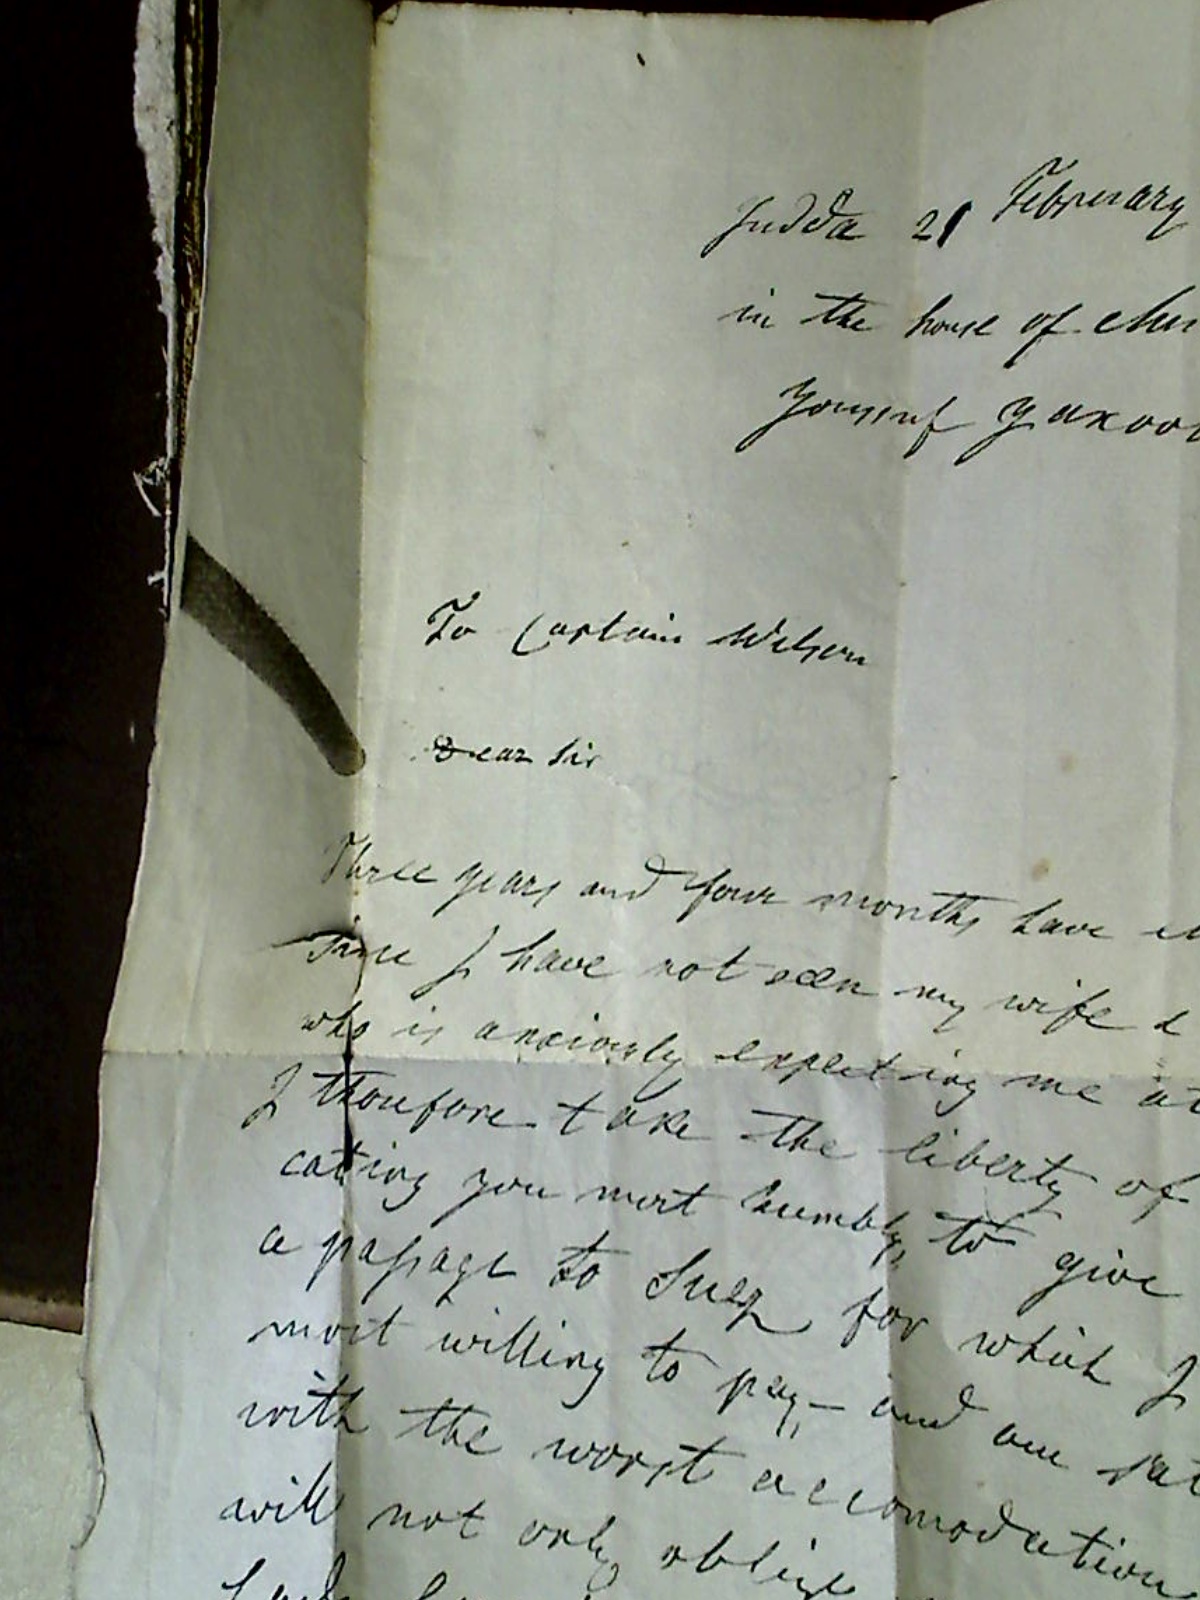 Judda 21 February
in the house of
Youssuf Yakoo
To Captain Wilson
Dear Sir
Three years and four months have
since I have not seen my wife &
who is anxiously expecting me at
I thorefore take the liberty of
cating you most humbly, to give
a passage to Suez for which I
most willing to pay – and am sat
with the worst accomodation
will not only oblige